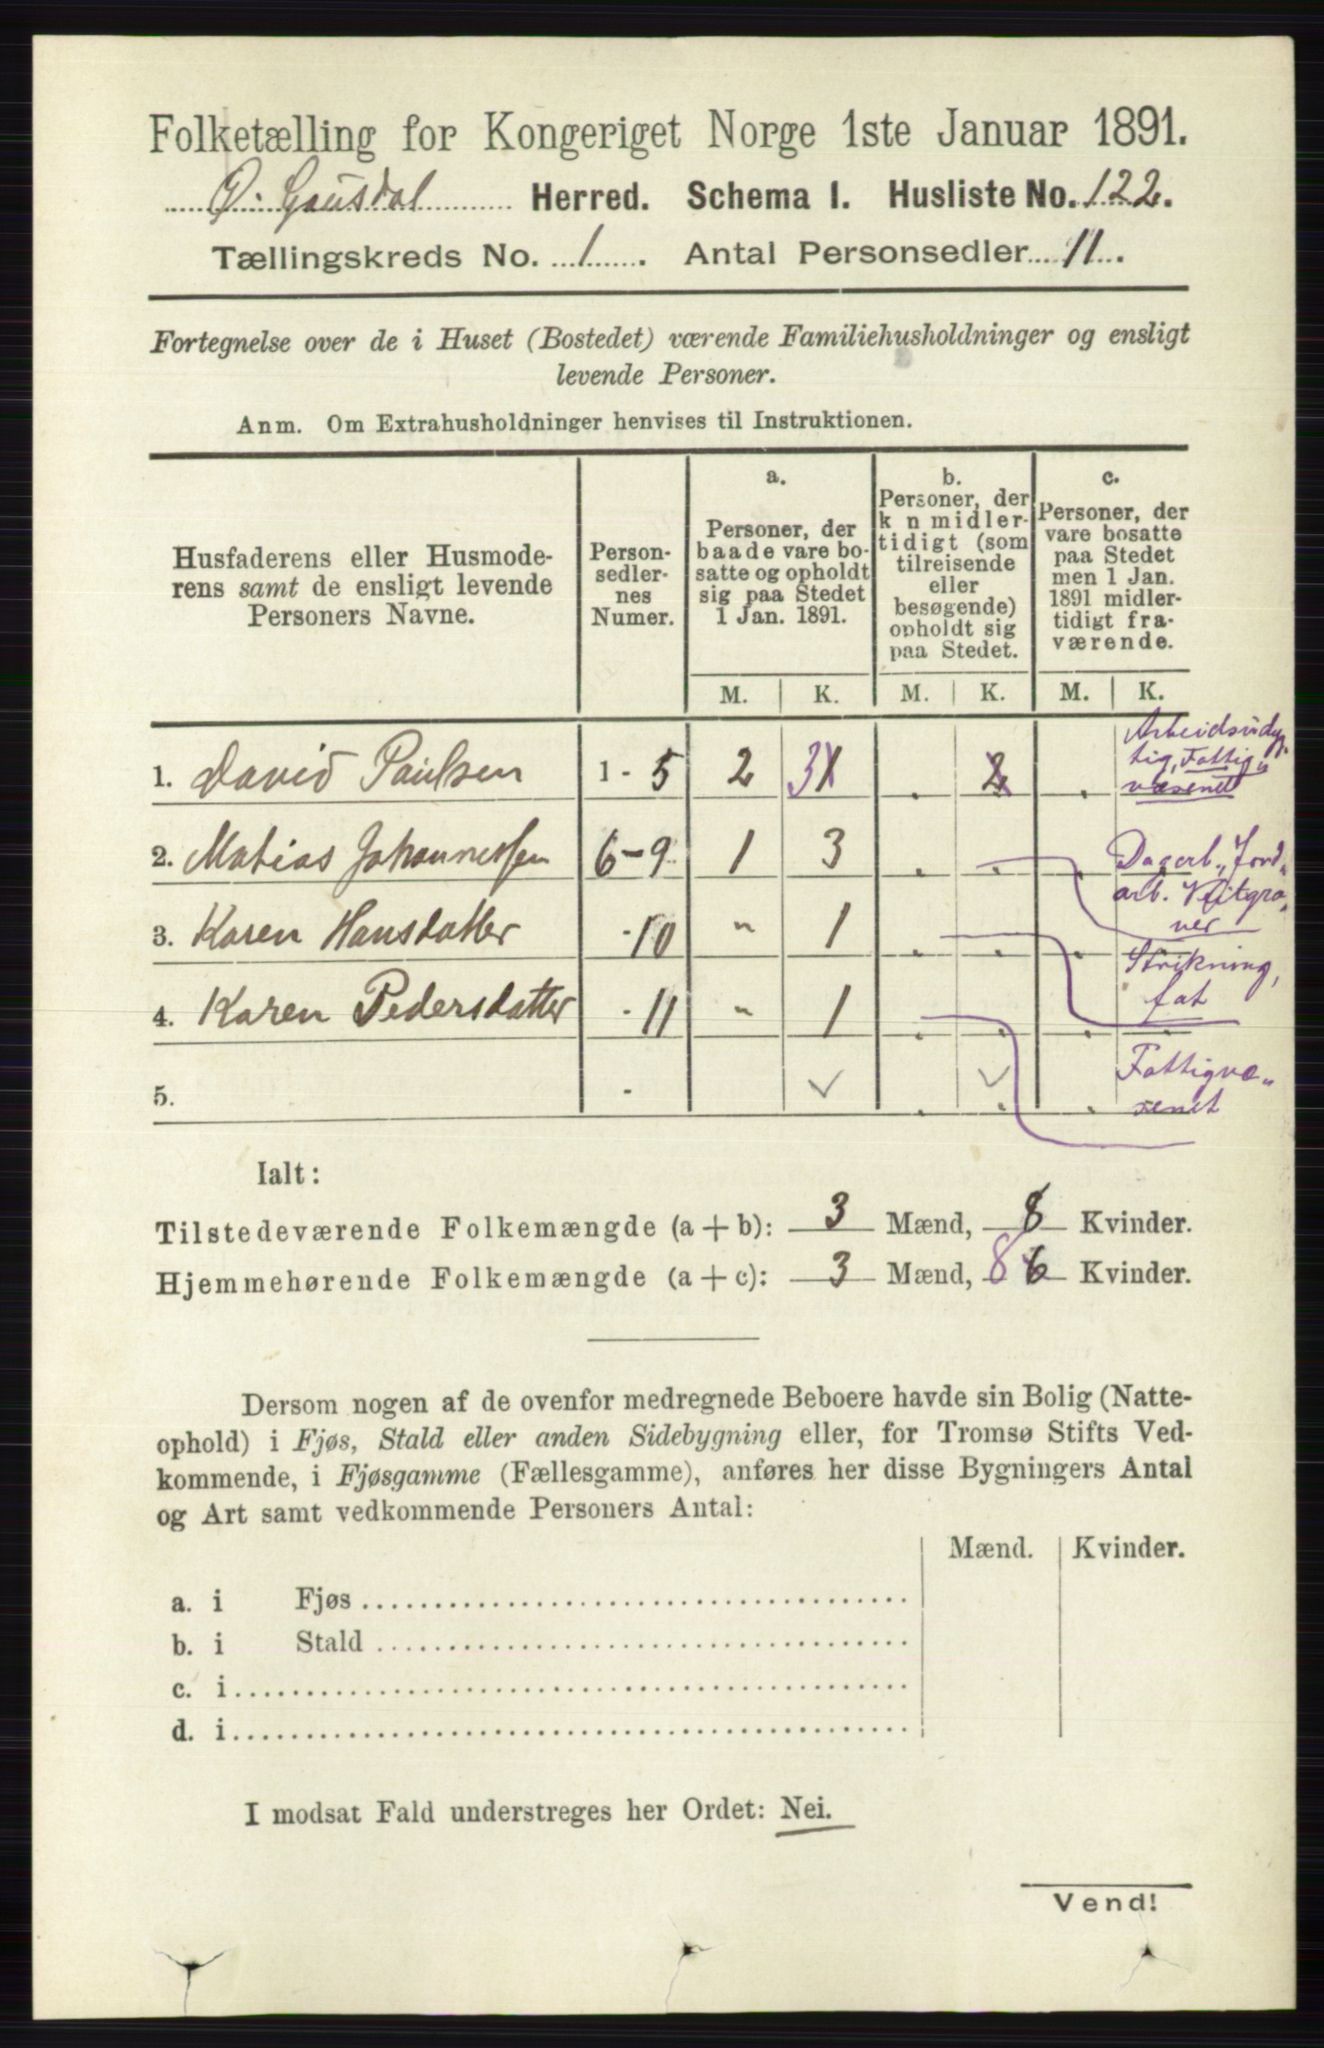 Folketælling for Kongeriget Norge 1ste Januar 1891.
Ø. Gausdal Herred. Schema I. Husliste No. 122.
Tællingskreds No. 1. Antal Personsedler 11.
Fortegnelse over de i Huset (Bostedet) værende Familiehusholdninger og ensligt
levende Personer.
Anm. Om Extrahusholdninger henvises til Instruktionen.
Husfaderens eller Husmode-
rens samt de ensligt levende
Personers Navne.
Person-
sedler-
nes
Numer.
a.
Personer, der
baade vare bo-
satte og opholdt
sig paa Stedet
1 Jan. 1891.
b.
Personer, der
k n midler-
tidigt (som
tilreisende
eller
besøgende)
opholdt sig
paa Stedet.
c.
Personer, der
vare bosatte
paa Stedet
men 1 Jan.
1891 midler-
tidigt fra-
værende.
M. K. M. K. M. K.
1. David Paulsen 1 - 5 2 3 1 . 2 . Arbeidsudyg-
tig, Fattig-
væsenet
2. Matias Johannessen 6-9 1 3 . . . Dagarb., Jord-
arb. Veitgra-
ver
3. Karen Hansdatter - 10 " 1 . . . Strikning,
fat
4. Karen Pedersdatter - 11 " 1 . . .
5. - ✓ . ✓ . Fattigvæ-
senet
Ialt:
Tilstedeværende Folkemængde (a + b): 3 Mænd, 8 Kvinder.
Hjemmehørende Folkemængde (a + c): 3 Mænd, 8 6 Kvinder.
Dersom nogen af de ovenfor medregnede Beboere havde sin Bolig (Natte-
ophold) i Fjøs, Stald eller anden Sidebygning eller, for Tromsø Stifts Ved-
kommende, i Fjøsgamme (Fællesgamme), anføres her disse Bygningers Antal
og Art samt vedkommende Personers Antal:
Mænd. Kvinder.
a. i Fjøs
b. i Stald
c. i
d. i
I modsat Fald understreges her Ordet: Nei.
Vend!